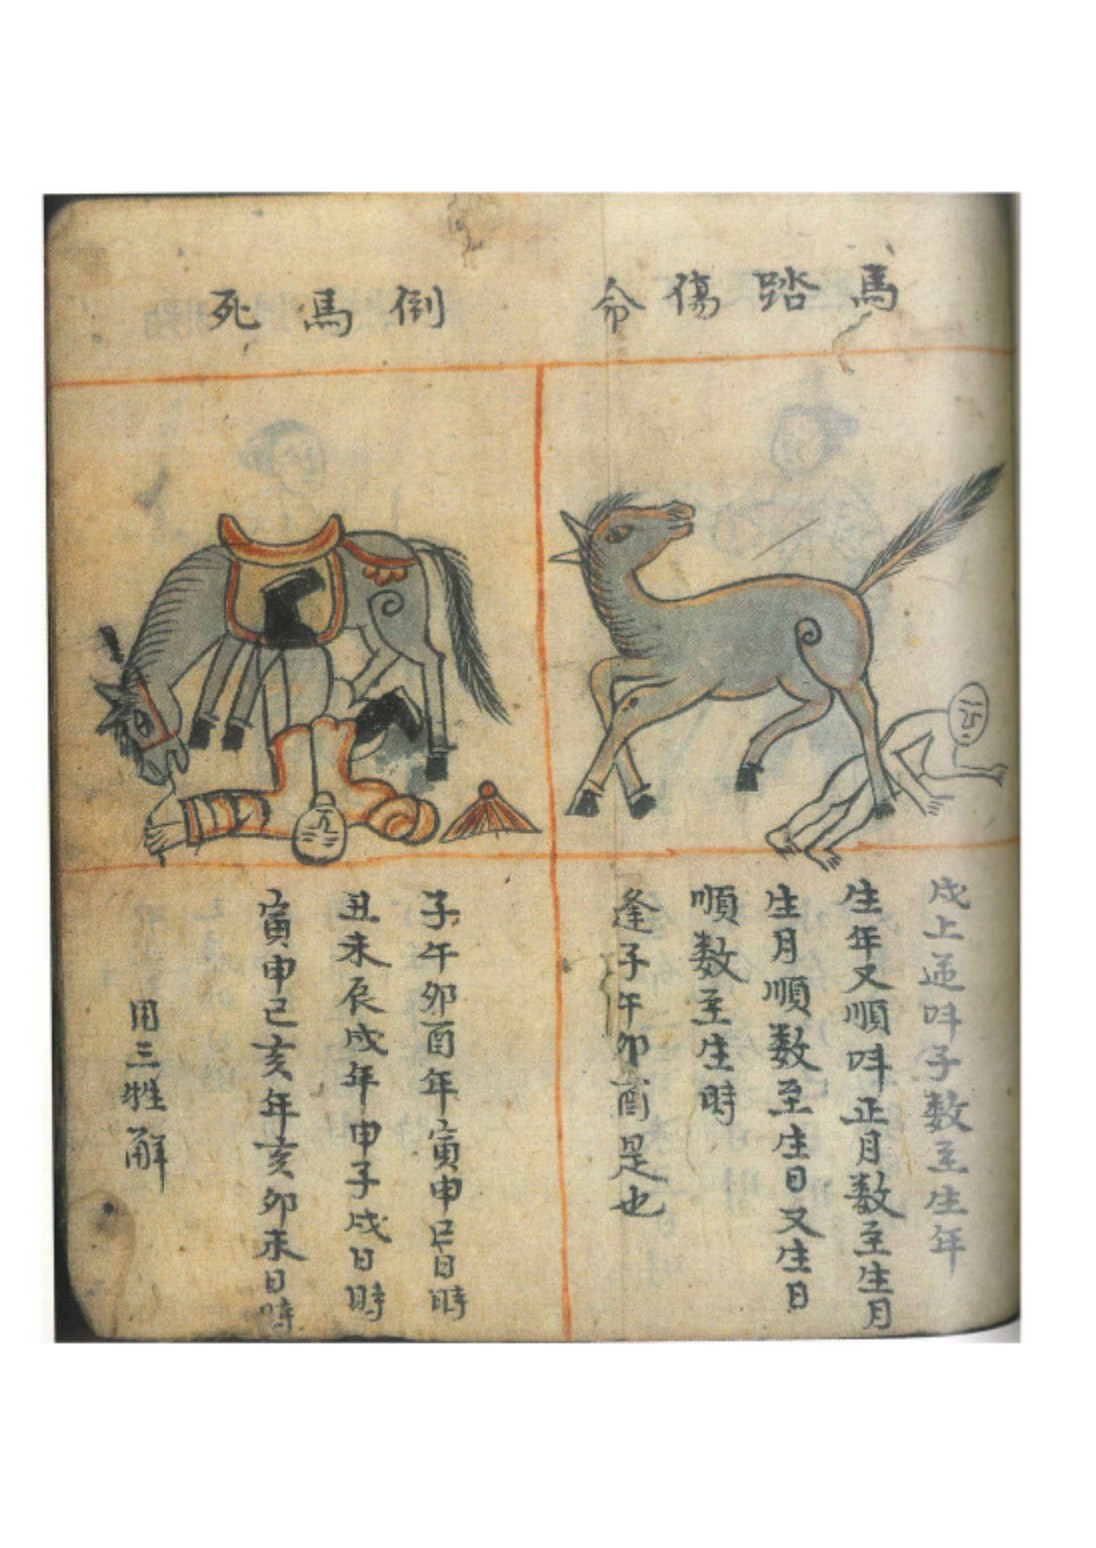 馬踏傷命
戌上逆呌子数至生年
生年又順呌正月数至生月
生月順数至生日又生日
順数至生時
逢子午卯酉是也
倒馬死
子午卯酉年寅申巳日時
丑未辰戌年申子戌日時
寅申巳亥年亥卯未日時
用三牲解